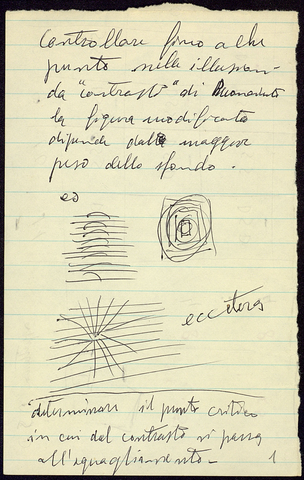 Controllare fino a che
punto nelle illusioni
da "contrasto" di
la figura modificata
dipende dal maggior
peso dello sfondo.
es
eccetera
determinare il punto critico
in cui dal contrasto si passa
all'eguagliamento-
1